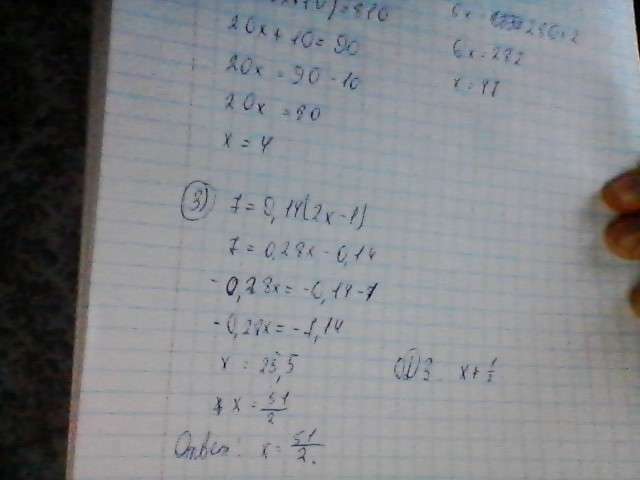 20x+10=90
20x=90-10
20x=80
x=4
6x=282
x=47
3) 7=0,14(2x-1)
7=0,28x-0,14
-0,28x=-0,14-7
-0,28x=-7,14
x=25,5
x=51/2
Ответ: x=51/2.